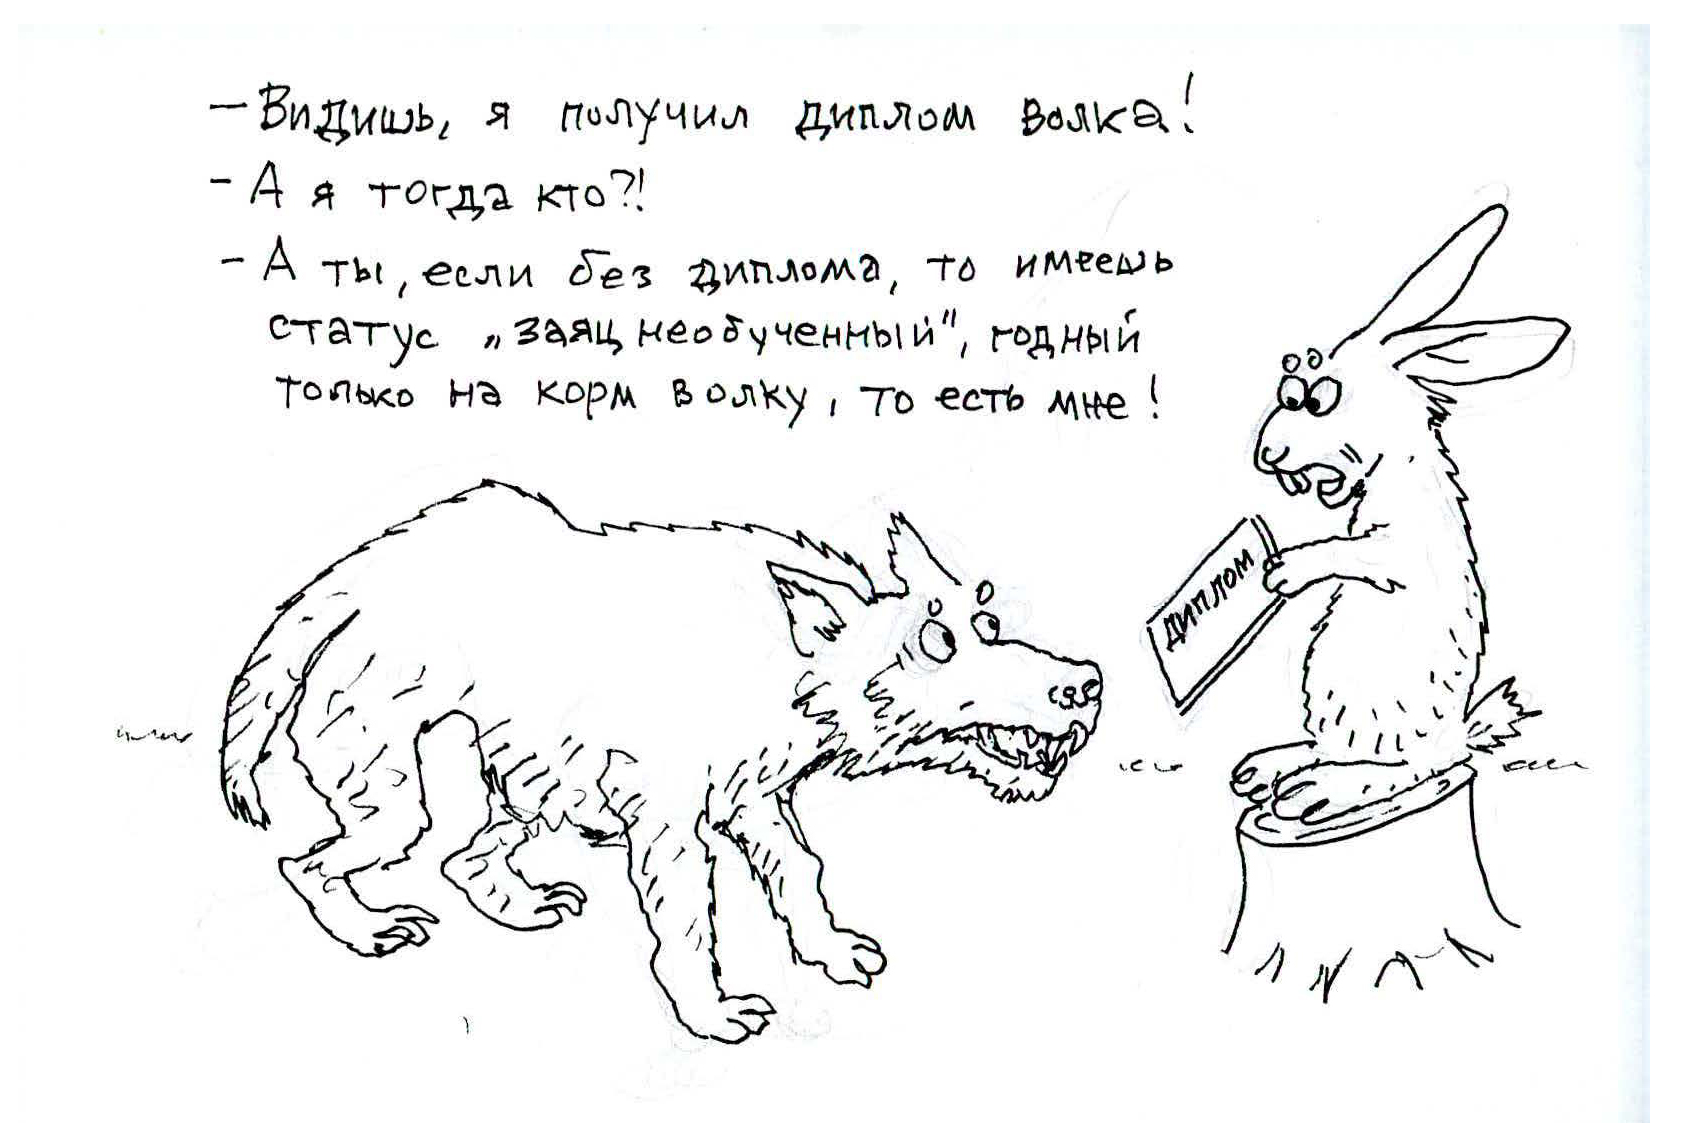 — Видишь, я получил диплом волка!
- А я тогда кто?!
- А ты, если без диплома, то имеешь
статус „заяц необученный", годный
только на корм волку, то есть мне!
ДИПЛОМ